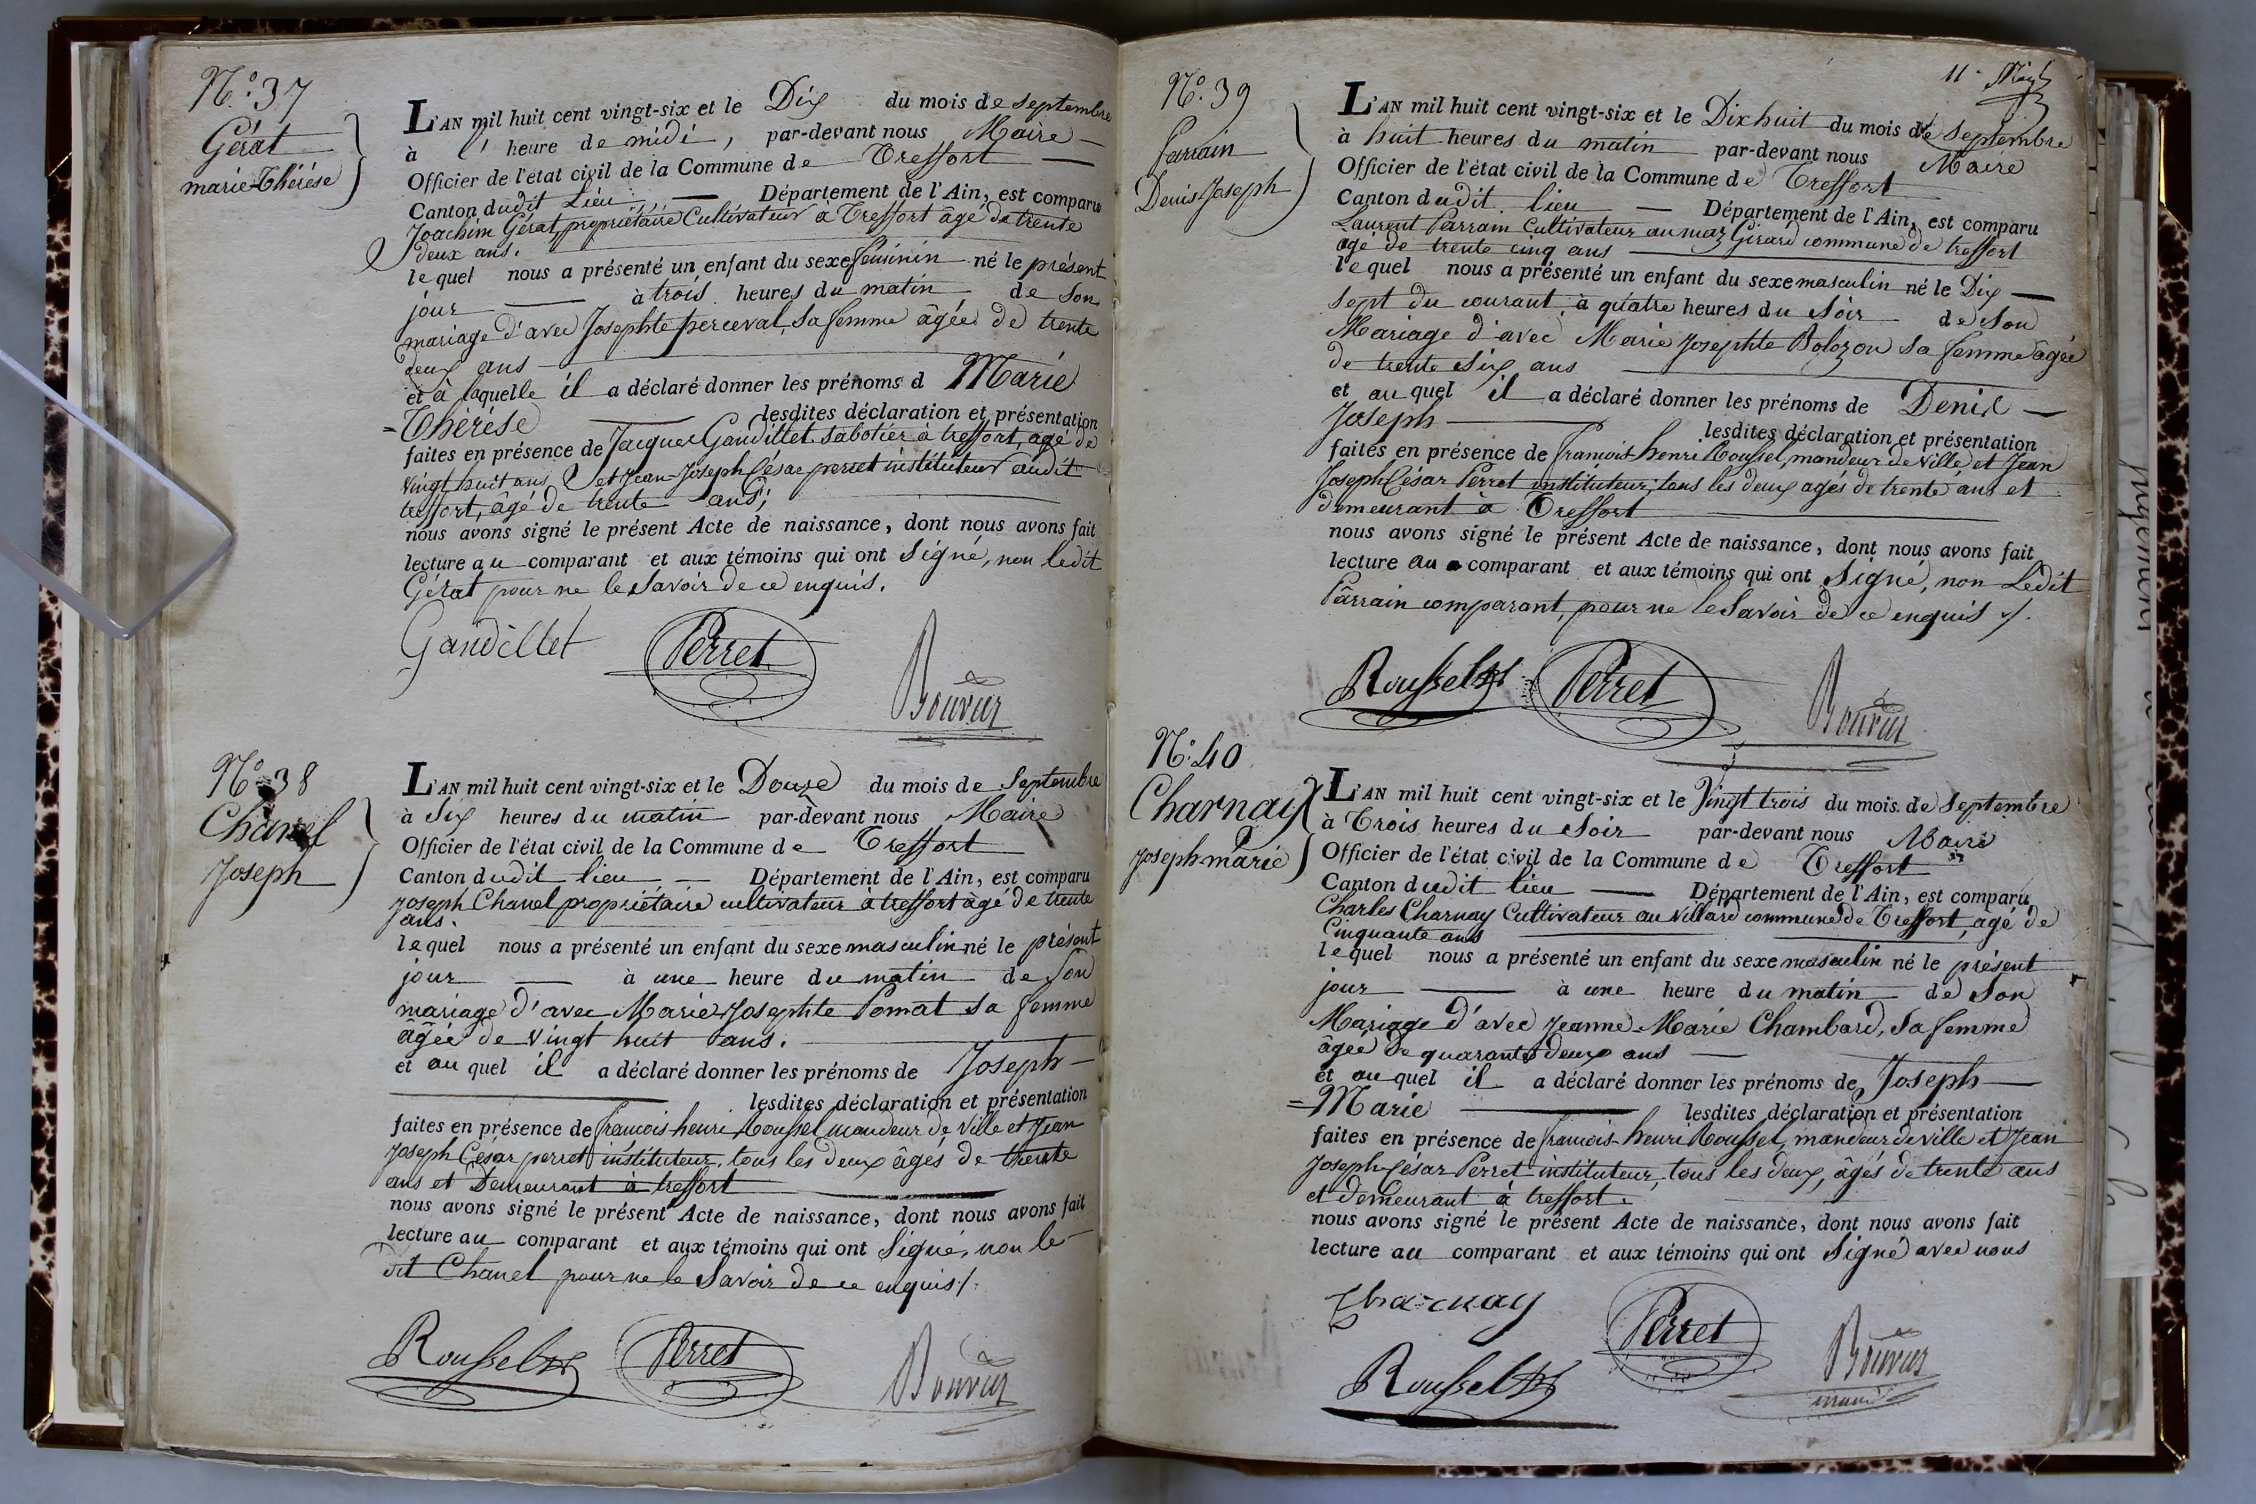 N.° 37
Gérat
marie-Thérèse
L'AN mil huit cent vingt-six et le Dix du mois de septembre
à l' heure de midi, par-devant nous Maire
Officier de l'état civil de la Commune de Treffort
Canton dudit Lieu Département de l'Ain, est comparu
Joachim Gérat, propriétaire Cultivateur à Treffort âgé de trente
deux ans.
lequel nous a présenté un enfant du sexe féminin né le présent
jour à trois heures du matin de son
mariage d'avec Josephte perceval, sa femme âgée de trente
deux ans
et à laquelle il a déclaré donner les prénoms d Marie
=Thérèse lesdites déclaration et présentation
faites en présence de Jacques Gandillet sabotier à treffort, agé de
vingt huit ans, et Jean-Joseph César perret instituteur audit
treffort, âgé de trente ans;
nous avons signé le présent Acte de naissance, dont nous avons fait
lecture au comparant et aux témoins qui ont signé, non ledit
Gérat pour ne le savoir de ce enquis.
Gandillet Perret Bouvier
N.° 38
Chanel
Joseph
L'AN mil huit cent vingt-six et le Douze du mois de Septembre
à six heures du matin par-devant nous Maire
Officier de l'état civil de la Commune de Treffort
Canton dudit lieu Département de l'Ain, est comparu
Joseph Chanel propriétaire cultivateur à treffort âgé de trente
ans.
lequel nous a présenté un enfant du sexe masculin né le présent
jour à une heure du matin de son
mariage d'avec Marie Josephte Pomat sa femme
âgée de vingt huit ans.
et au quel il a déclaré donner les prénoms de Joseph
lesdites déclaration et présentation
faites en présence de francois henri Roussel mandeur de ville et Jean
Joseph César perret instituteur, tous les deux âgés de trente
ans et Demeurant à treffort
nous avons signé le présent Acte de naissance, dont nous avons fait
lecture au comparant et aux témoins qui ont signé, non le
dit Chanel pour ne le savoir de ce enquis./.
Roussel Perret Bouvier
11.
N.° 39
Parrain
Denis Joseph
L'AN mil huit cent vingt-six et le Dix huit du mois de septembre
à huit heures du matin par-devant nous Maire
Officier de l'état civil de la Commune de Treffort
Canton dudit lieu Département de l'Ain, est comparu
Laurent Parrain Cultivateur au maz Girard commune de treffort
agé de trente cinq ans
lequel nous a présenté un enfant du sexe masculin né le Dix
sept du courant à quatre heures du soir de son
Mariage d'avec Marie Josephte Bolozon sa femme âgée
de trente six ans
et au quel il a déclaré donner les prénoms de Denis
Joseph lesdites déclaration et présentation
faites en présence de françois henri Roussel, mandeur de ville et Jean
Joseph César Perret instituteur, tous les deux agés de trente ans et
demeurant à Treffort
nous avons signé le présent Acte de naissance, dont nous avons fait
lecture au comparant et aux témoins qui ont signé, non Ledit
Parrain comparant, pour ne le savoir de ce enquis ./.
Roussel Perret Bouvier
N.° 40
Charnay
Joseph marie
L'AN mil huit cent vingt-six et le Vingt trois du mois de septembre
à Trois heures du soir par-devant nous Maire
Officier de l'état civil de la Commune de Treffort
Canton dudit lieu Département de l'Ain, est comparu
Charles Charnay Cultivateur au villard commune de Treffort, agé de
Cinquante ans
lequel nous a présenté un enfant du sexe masculin né le présent
jour à une heure du matin de son
Mariage d'avec Jeanne-Marie Chambard, sa femme
âgée de quarante deux ans
et au quel il a déclaré donner les prénoms de Joseph
=Marie lesdites déclaration et présentation
faites en présence de francois-henri Roussel, mandeur de ville et Jean
Joseph César Perret instituteur, tous les deux, âgés de trente ans
et demeurant à treffort.
nous avons signé le présent Acte de naissance, dont nous avons fait
lecture au comparant et aux témoins qui ont signé avec nous
Charnay Perret Bouvier
Roussel